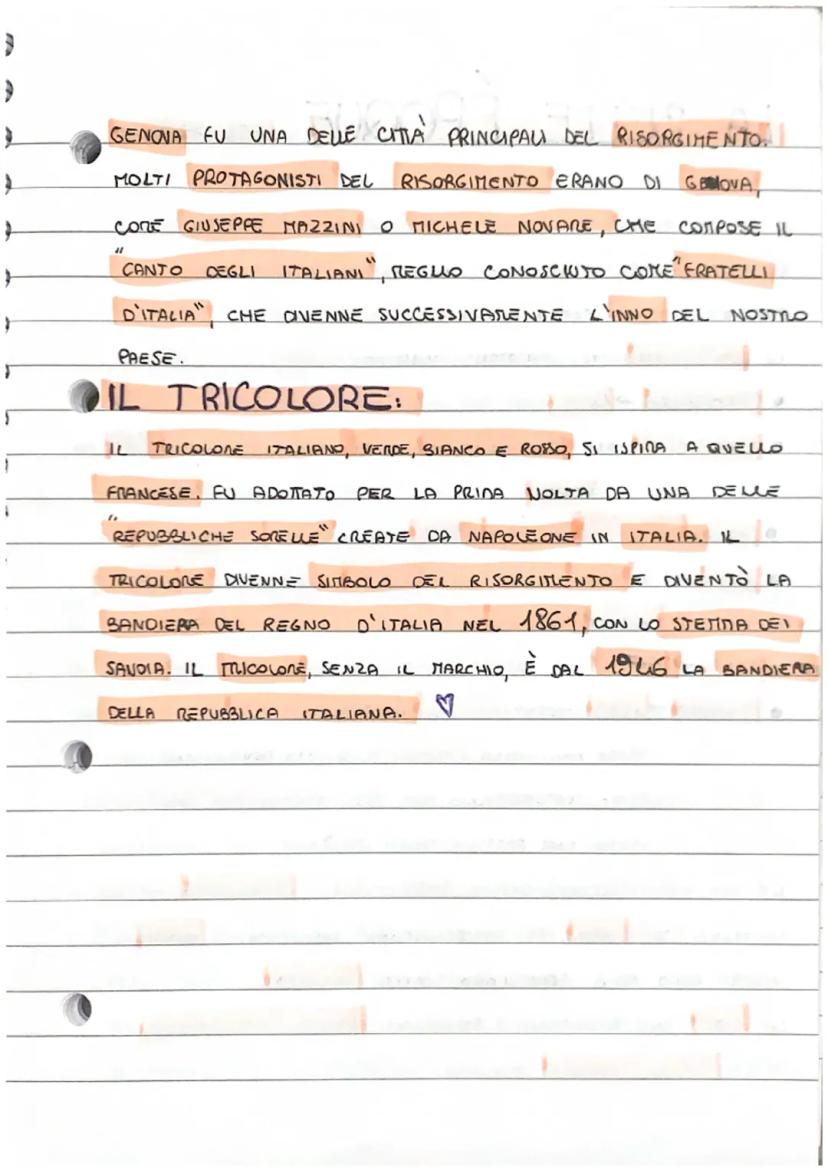 GENOVA FU UNA DELLE CITTÀ PRINCIPALI DEL RISORGIMENTO.
MOLTI PROTAGONISTI DEL RISORGIMENTO ERANO DI GENOVA,
COME GIUSEPPE MAZZINI O MICHELE NOVARE, CHE COMPOSE IL
"CANTO DEGLI ITALIANI", MEGLIO CONOSCIUTO COME "FRATELLI
D'ITALIA", CHE DIVENNE SUCCESSIVAMENTE L'INNO DEL NOSTRO
PAESE.
IL TRICOLORE:
IL TRICOLORE ITALIANO, VERDE, BIANCO E ROSSO, SI ISPIRA A QUELLO
FRANCESE. FU ADOTTATO PER LA PRIMA VOLTA DA UNA DELLE
"REPUBBLICHE SORELLE" CREATE DA NAPOLEONE IN ITALIA. IL
TRICOLORE DIVENNE SIMBOLO DEL RISORGIMENTO E DIVENTÒ LA
BANDIERA DEL REGNO D'ITALIA NEL 1861, CON LO STEMMA DEI
SAVOIA. IL TRICOLORE, SENZA IL MARCHIO, È DAL 1946 LA BANDIERA
DELLA REPUBBLICA ITALIANA.